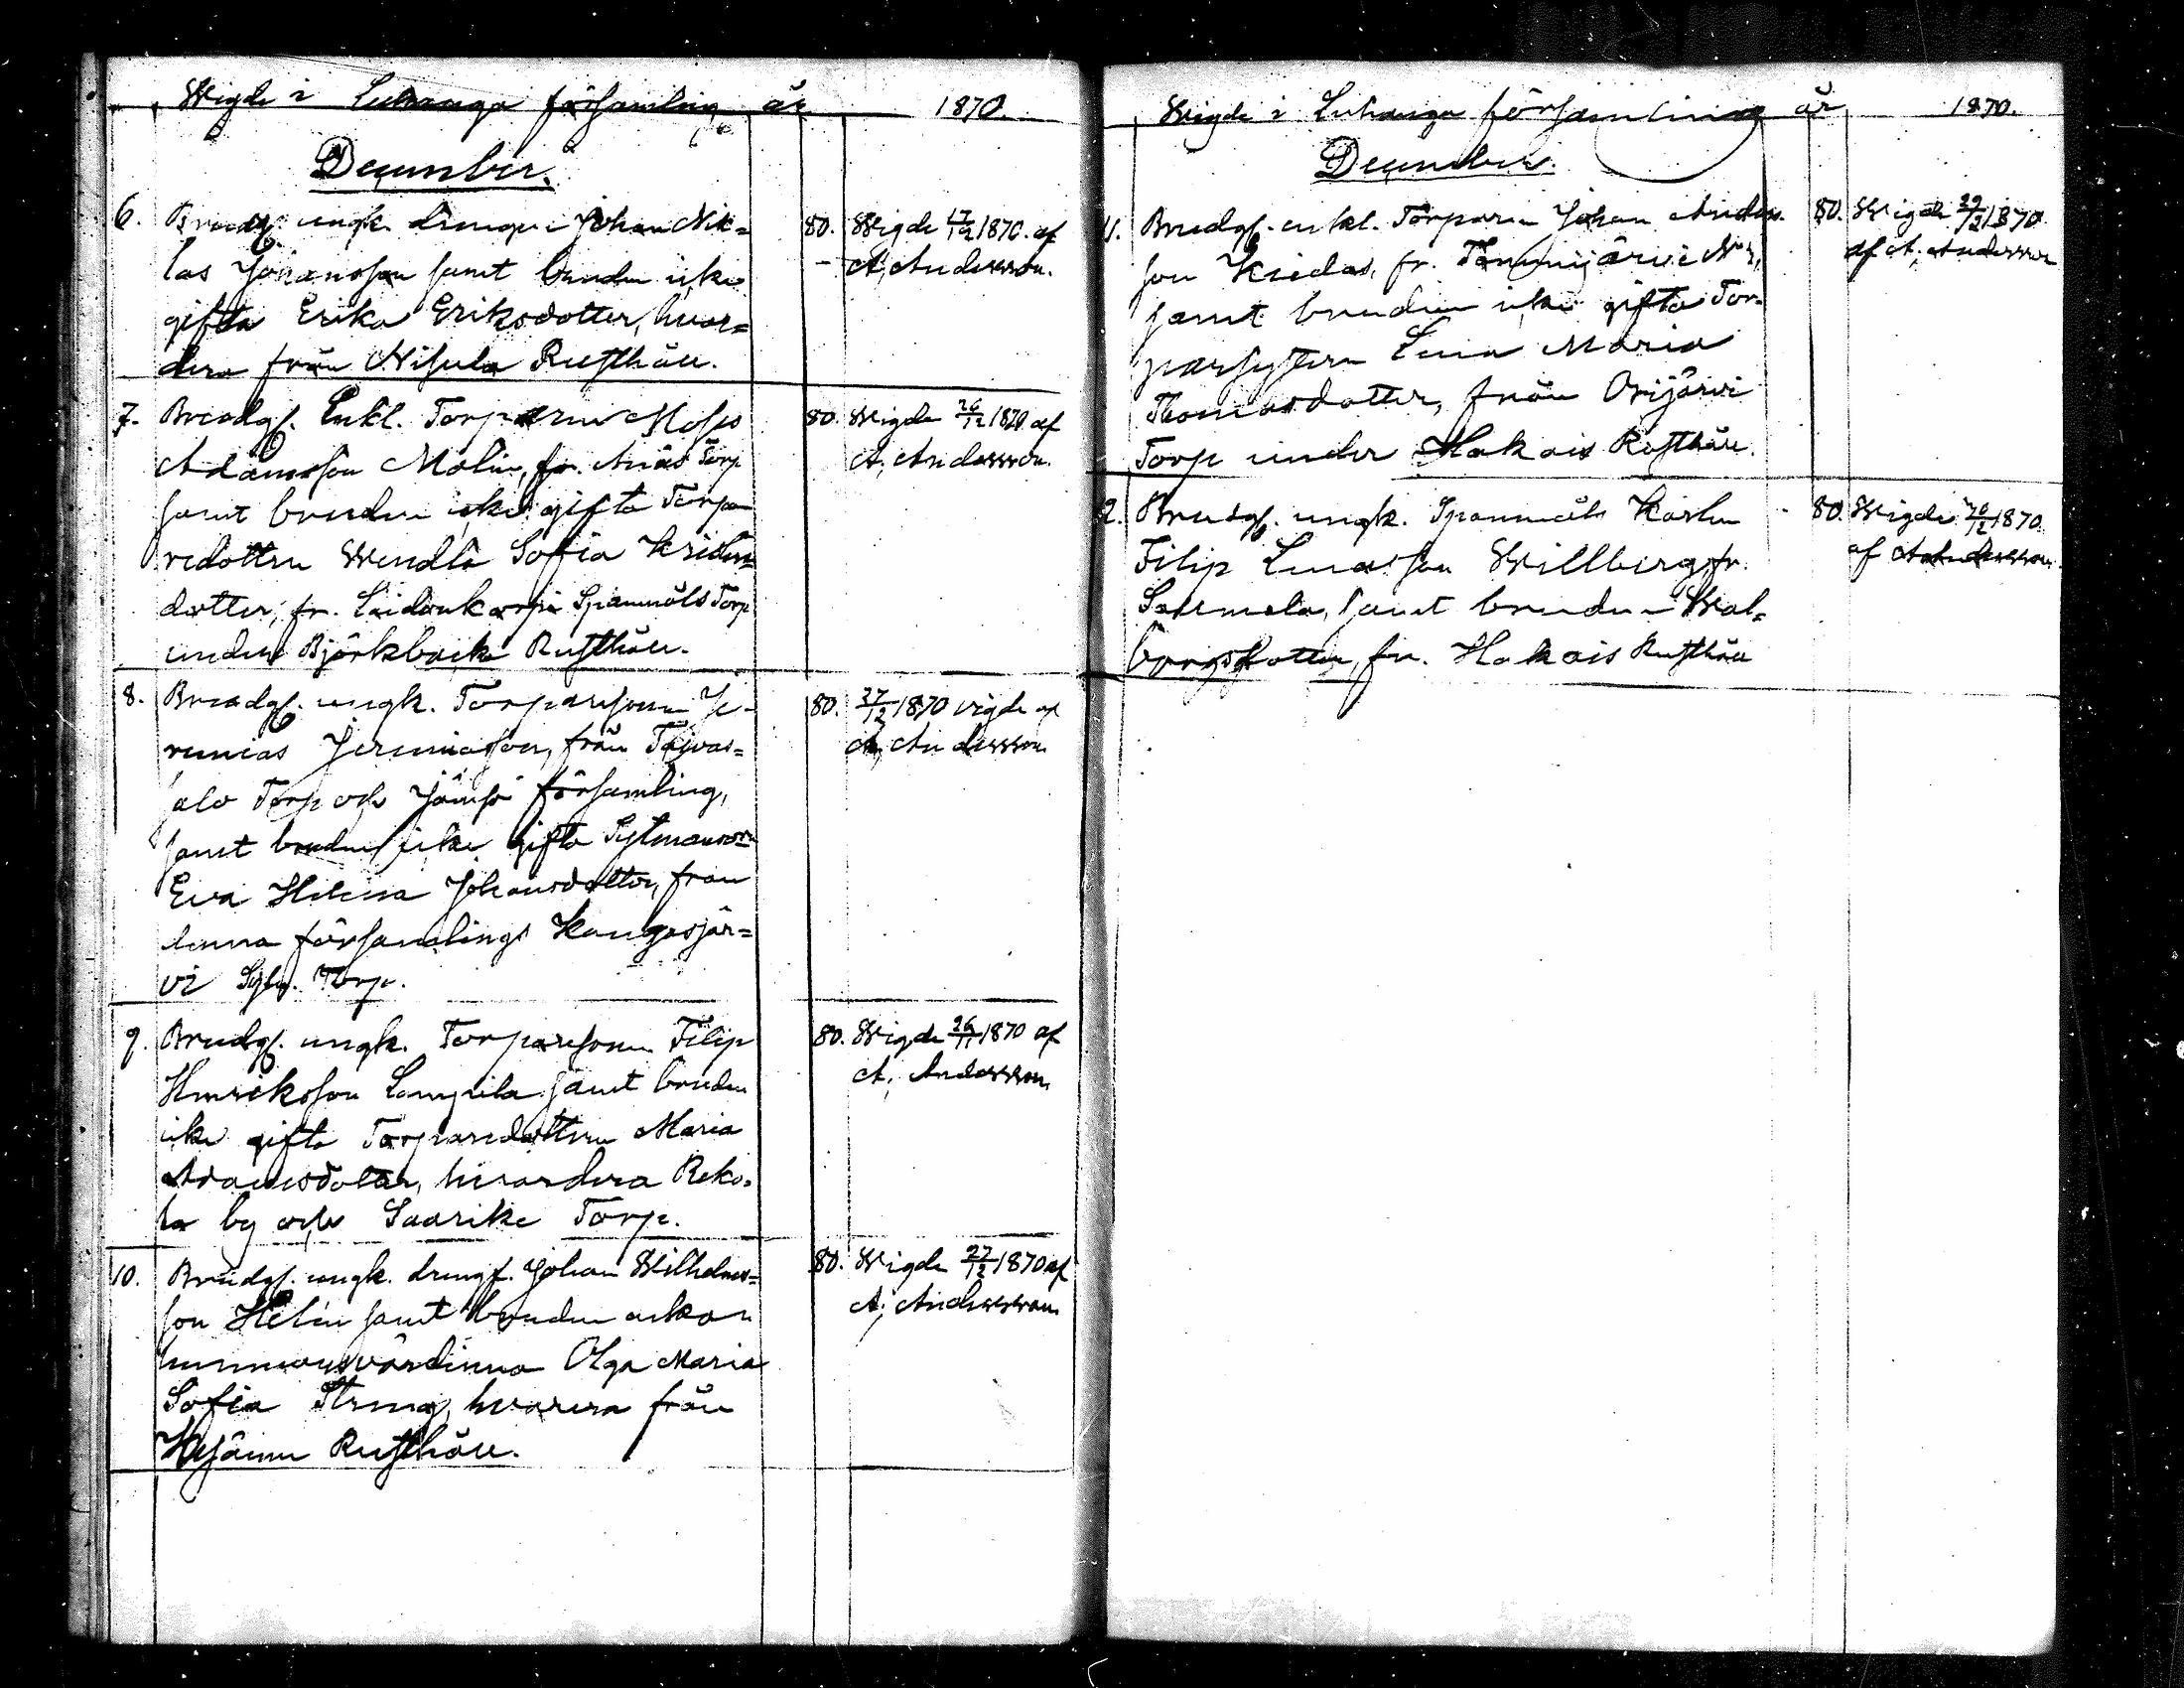 Wigde i Luhanga församling år 1870.
December.
6. Brudg. ungk. drengen Johan Nik=
las Johansson samt bruden icke
gifta Erika Eriksdotter, hvar=
dera från Nisula Rusthåll.
80. Wigde 17/12 1870. af
A. Andersson.
7. Brudg. Enkl. Torparen Moses
Adamsson Malin, fr. Anäs Torp
samt bruden icke gifta Torpa
redottren Wendla Sofia
dotter, fr. Spanmåls Torp
under Björkbacka Rusthåll.
80. Wigde 26/12 1870 af
A. Andersson.
8. Brudg. ungk. Torparesonen Je-
remias Jeremiasson, från Taivas=
alo Torp och Jämsä församling,
samt bruden icke gifta
Eva Helena Johansdotter, från
denna församlings Kangasjär=
vi Torp.
80. 27/12 1870 vigde af
A. Andersson
9. Brudg. ungk. Torparesonen Filip
Henriksson Lampila samt bruden
icke gifta Torparedottren Maria
Adamsdotter, hvardera Reko-
la by och Saarike Torp.
80. Wigde 26/11 1870 af
A. Andersson
10. Brudg. ungk. drengs. Johan Wilhelms=
son Helin samt bruden
Olga Maria
Sofia från
Rusthåll.
80. Wigde 27/12 1870 af
A. Andersson
Wigde i Luhanga församling år 1870.
December.
11. Brudg. enkl. Torparen Johan Anders-
son fr. Tammijärvi N 2,
samt bruden icke gifta Tor-
Lena Maria
Thomasdotter, från Orijärvi
Torp under Hakais Rusthåll.
80. Wigde 29/12 1870
af A. Andersson
12. Brudg. ungk. Spanmåls Karlen
Filip Willberg, fr.
samt bruden Wal=
borgsdotter, fr. Hakais Rusthåll
80. Wigde 26/12 1870.
af A Andersson